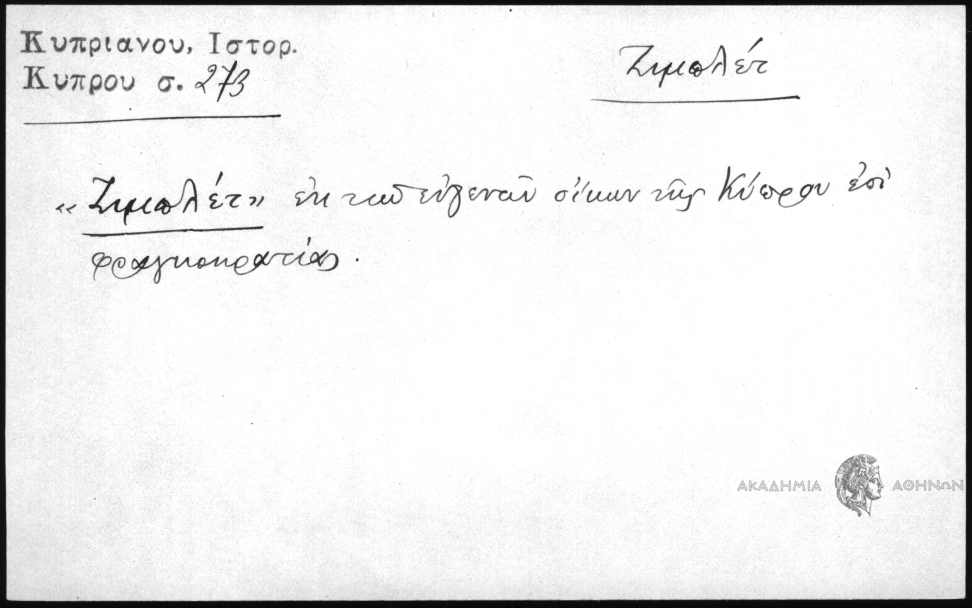 Κυπριανου, Ιστορ.
Κυπρου σ. 273
Ζιμπλέτ
«Ζιμπλέτ» ἐκ τῶν εὐγενῶν οἴκων τῆς Κύπρου ἐπὶ
φραγκοκρατίας.
ΑΚΑΔΗΜΙΑ ΑΘΗΝΩΝ